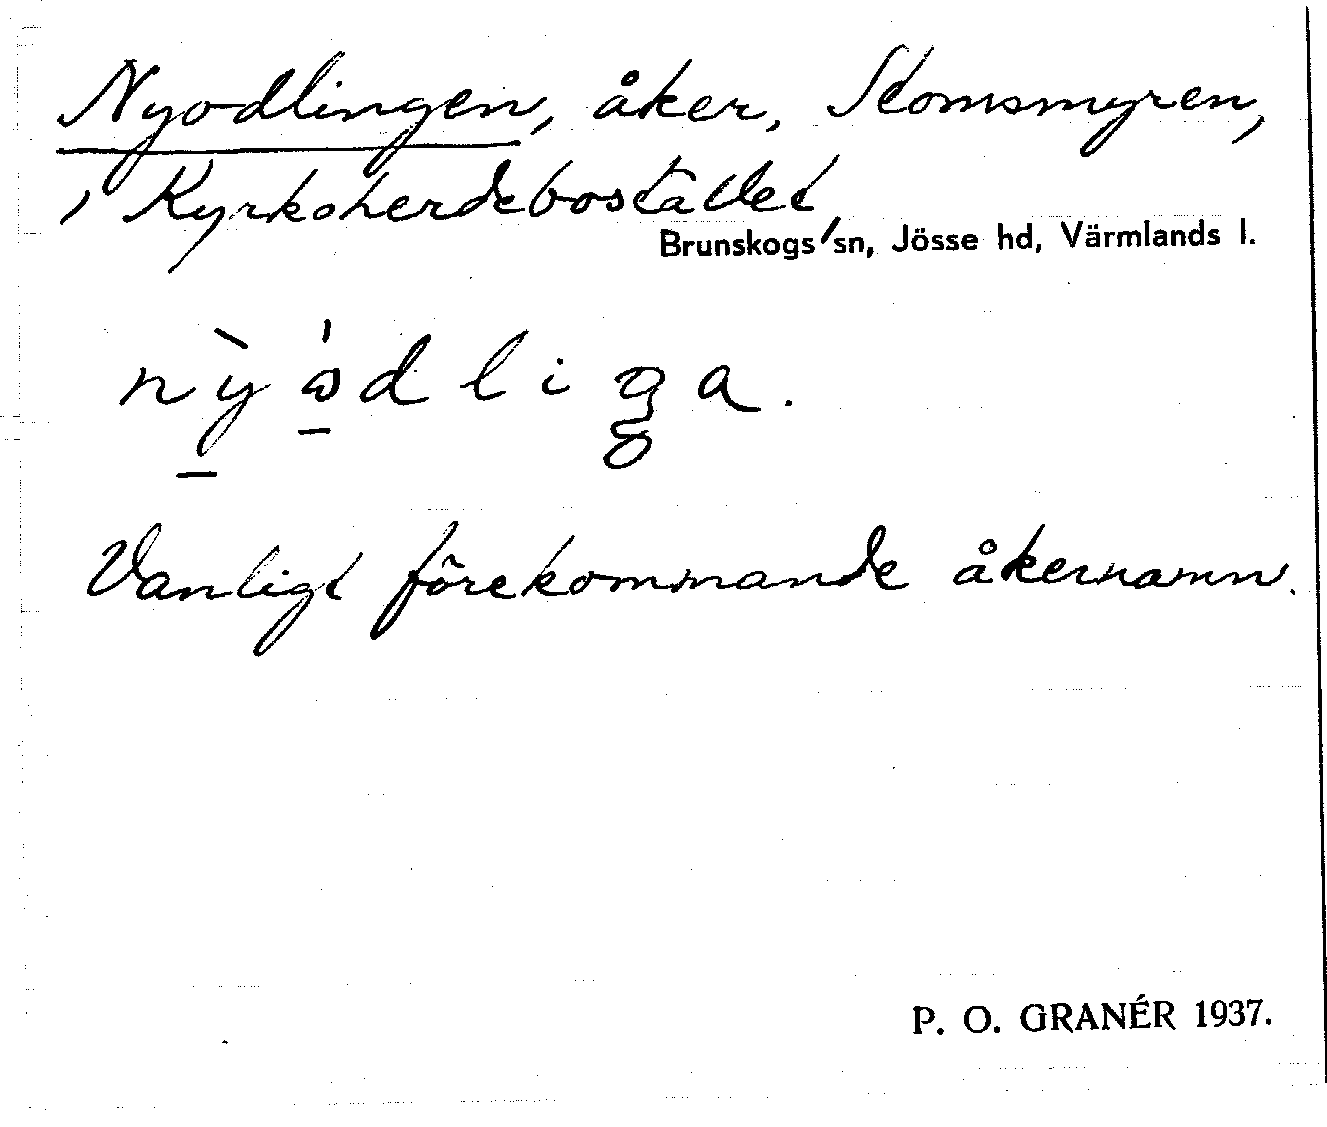 Nyodlingen, åker, Stomsmyren,
, Kyrkoherdebostället,
Brunskogs sn, Jösse hd, Värmlands l.
nỳɷ́dliŋa.
Vanligt förekommande åkernamn.
P. O. GRANÉR 1937.